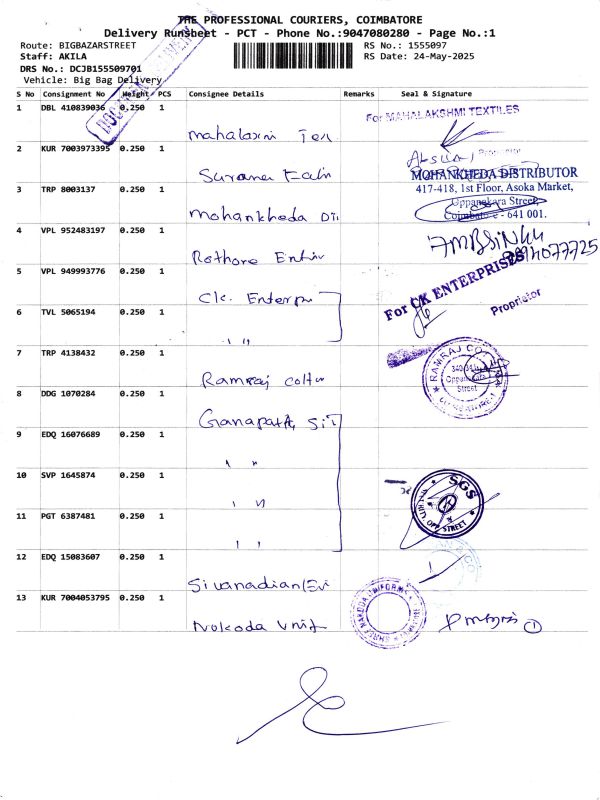 THE PROFESSIONAL COURIERS, COIMBATORE
Delivery Runsheet - PCT - Phone No.:9047080280 - Page No.:1
Route: BIGBAZARSTREET
Staff: AKILA
DRS No.: DCJB155509701
Vehicle: Big Bag Delivery
RS No.: 1555097
RS Date: 24-May-2025
S No Consignment No Weight PCS Consignee Details Remarks Seal & Signature
1 DBL 410839036 0.250 1
Mahalaxmi Tex
For MAHALAKSHMI TEXTILES
Proprietor
2 KUR 7003973395 0.250 1
Surana
3 TRP 8003137 0.250 1
Mohankheda Dis
MOHANKHEDA DISTRIBUTOR
417-418, 1st Floor, Asoka Market,
Uppanakara Street,
Coimbatore - 641 001.
4 VPL 952483197 0.250 1
Rathore
5 VPL 949993776 0.250 1
Ck. Enterpri
For CK ENTERPRISES
Proprietor
6 TVL 5065194 0.250 1
" "
7 TRP 4138432 0.250 1
Ramraj Cotto
RAMRAJ CO
Street
8 DDG 1070284 0.250 1
Ganapathy Sil
9 EDQ 16076689 0.250 1
" "
10 SVP 1645874 0.250 1
" "
SGS
STREET
11 PGT 6387481 0.250 1
" "
12 EDQ 15083607 0.250 1
13 KUR 7004053795 0.250 1
Nakoda Unif